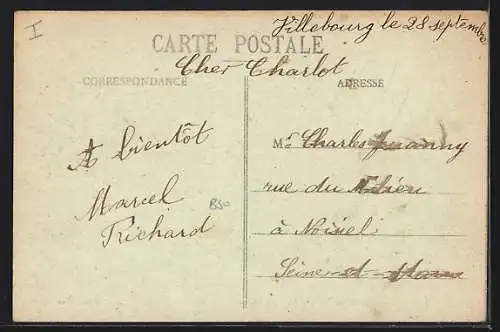 I
Villebourg le 28 septembre
CARTE POSTALE
Cher Charlot
CORRESPONDANCE
ADRESSE
A bientôt
Marcel
Richard
B50
Mr Charles
rue du
à Noisiel
Seine-et-Marne